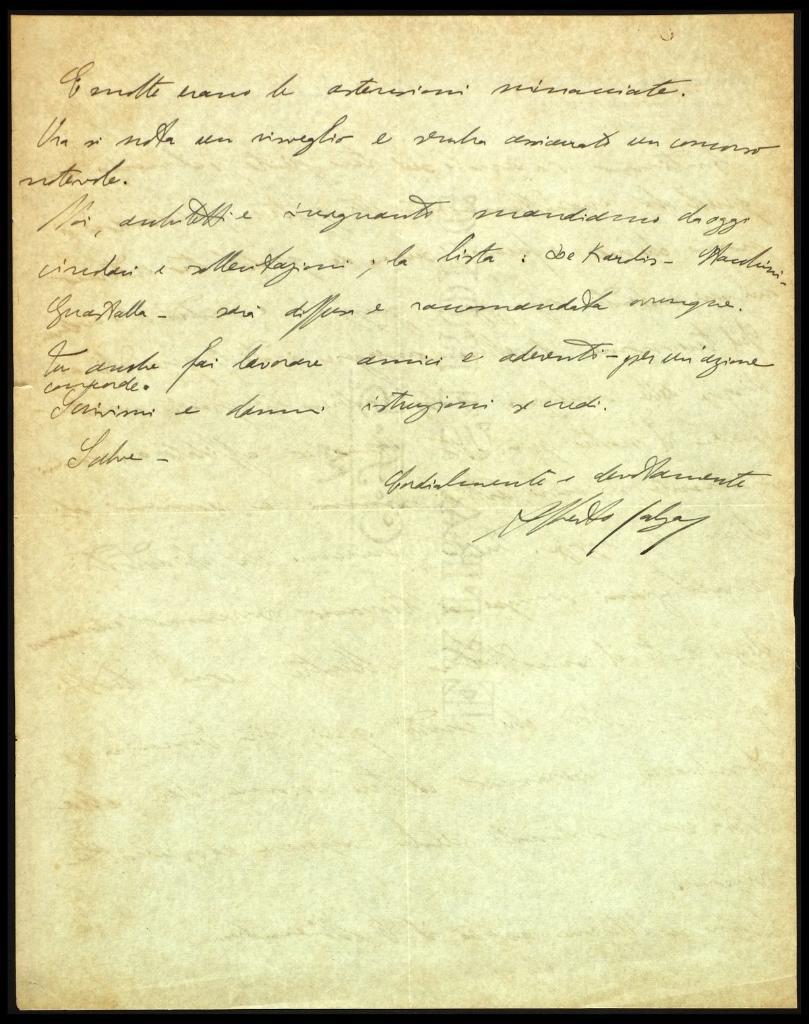 E molte erano le astensioni minacciate.
Ora si nota un risveglio e sembra assicurato un concorso
notevole.
Noi, architetti e insegnanti mandiamo da oggi
circolari e sollecitazioni; la lista: De Karlis -
Guastalla - sarà diffusa e raccomandata ovunque.
Tu anche fai lavorare amici e aderenti - per un'azione
concorde.
Scrivimi e dammi istruzioni se credi.
Salve -
Cordialmente e devotamente
Alfredo